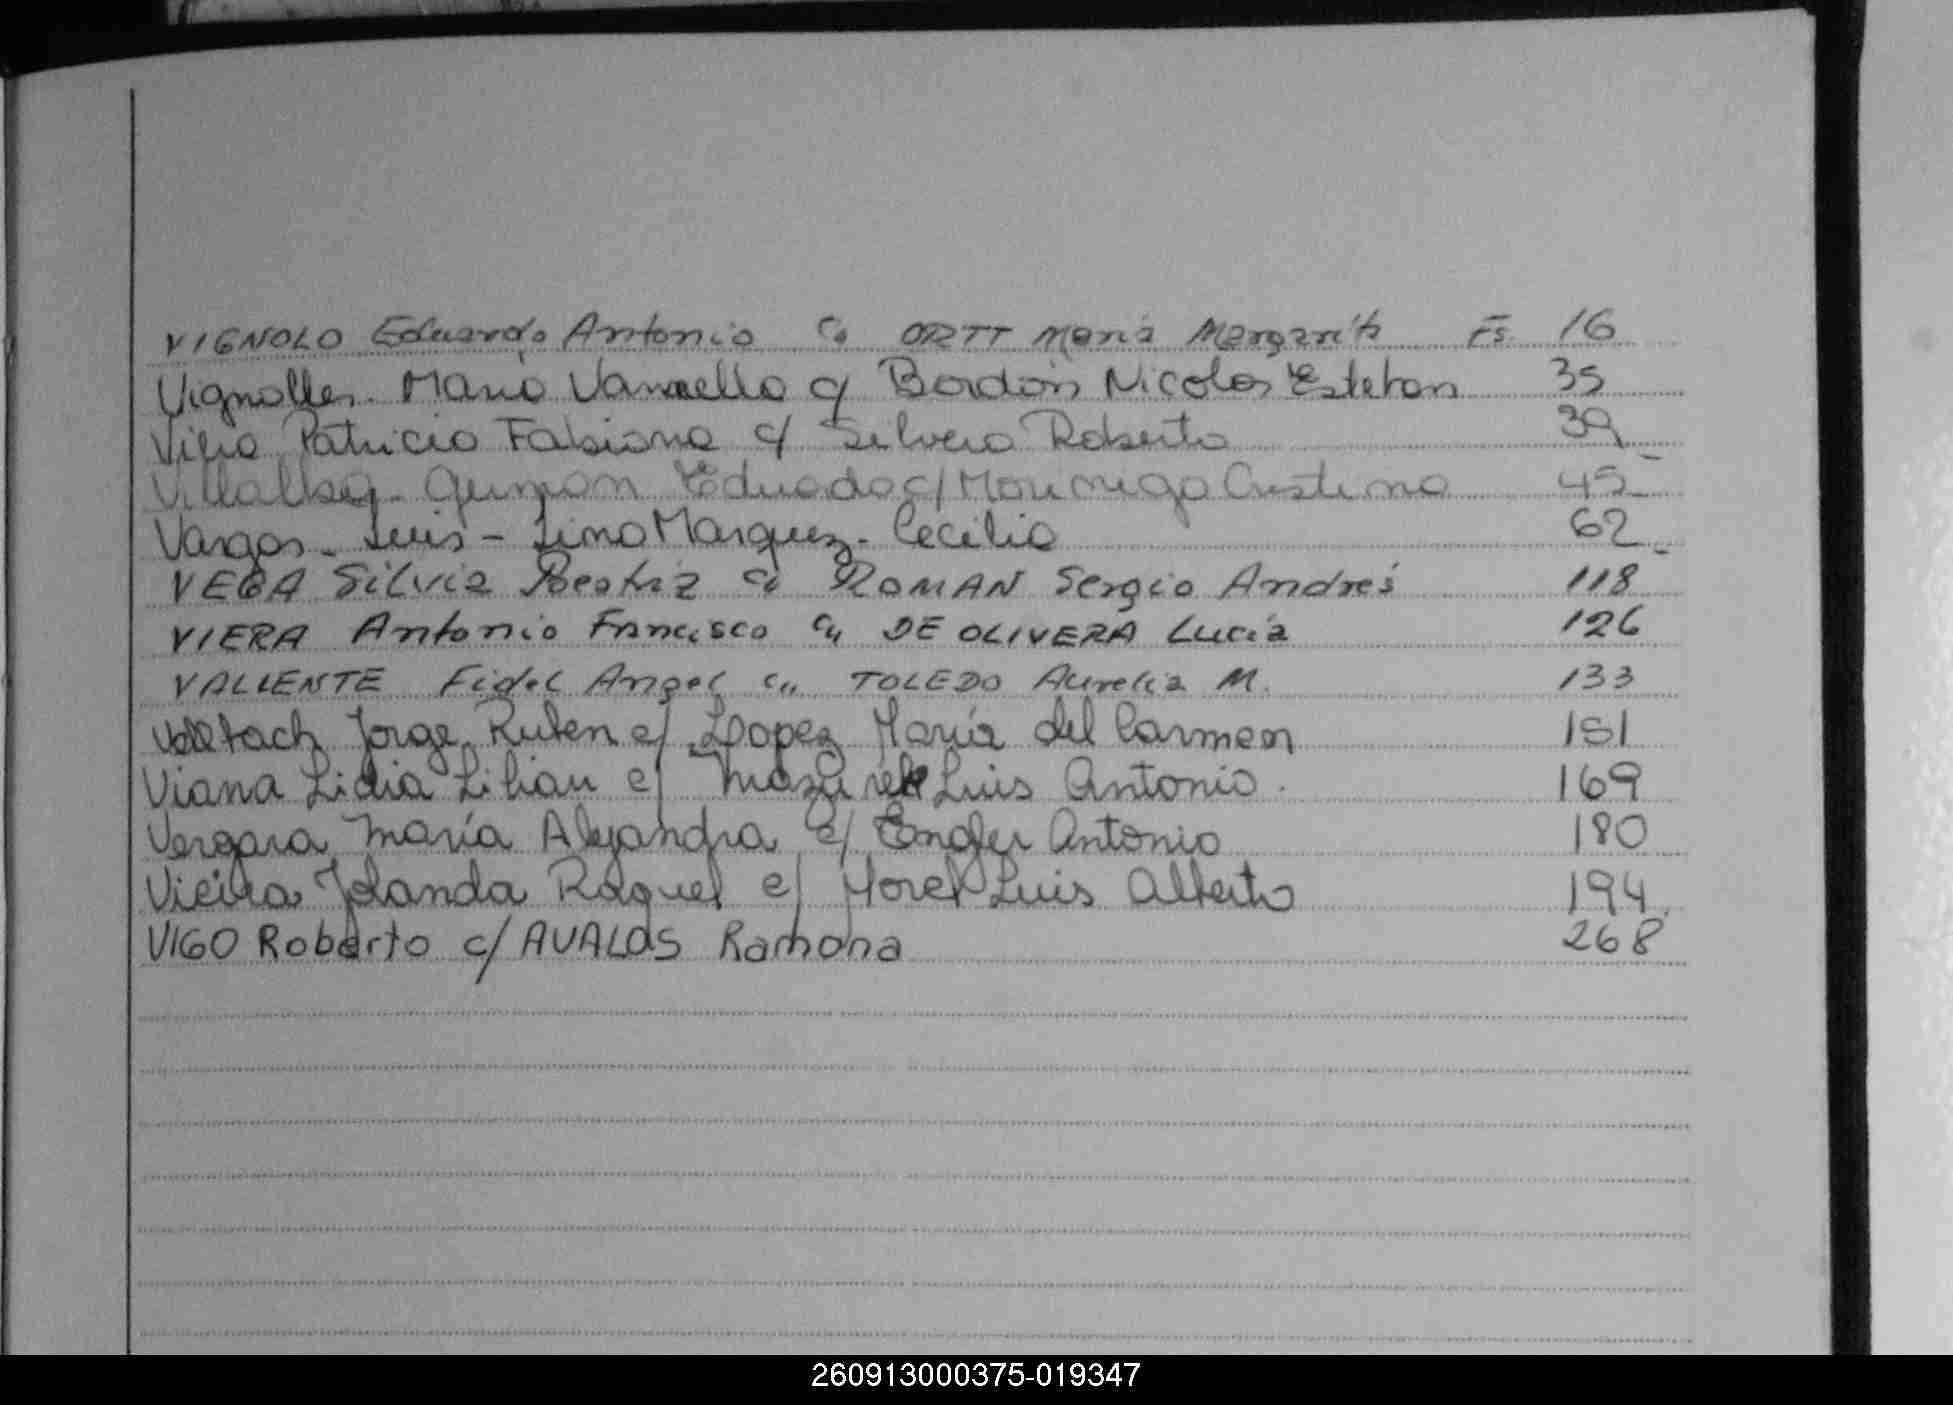 VIGNOLO Eduardo Antonio c/ ORTT María Margarita Fs. 16
Vignolles. María Vanaella c/ Bordón Nicolas Esteban 35
Patricia Fabiana c/ Silvero Roberto 39
Villalba - German Eduardo c/ Morinigo Cristina 45
Vargas - Luis - Lino Marquez - Cecilia 62
VEGA Silvia Beatriz c/ ROMAN Sergio Andrés 118
VIERA Antonio Francisco c/ DE OLIVERA Lucía 126
VALLENTE Fidel Angel c/ TOLEDO Aurelia M. 133
Jorge Ruben c/ Lopez María del Carmen 151
Viana Lidia Lilian c/ Luis Antonio. 169
Vergara María Alejandra c/ Engler Antonio 180
Vieira Jolanda Raquel c/ Morel Luis Alberto 194
VIGO Roberto c/ AVALOS Ramona 268
260913000375-019347